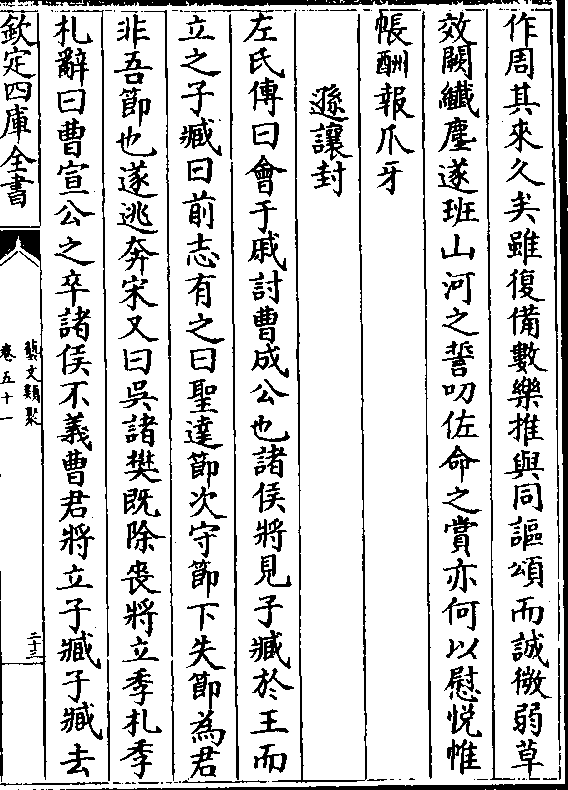 作周其來久矣雖復備數樂推與同謳頌而誠微弱草
效闕纎塵遂班山河之誓叨佐命之賞亦何以慰悦帷
帳酬報爪牙
遜讓封
左氏傳曰會于戚討曹成公也諸侯將見子臧於王而
立之子臧曰前志有之曰聖達節次守節下失節為君
非吾節也遂逃奔宋又曰吳諸樊既除喪將立季札季
札辭曰曹宣公之卒諸侯不義曹君將立子臧子臧去
欽定四庫全書
藝文類聚
卷五十一
二十三